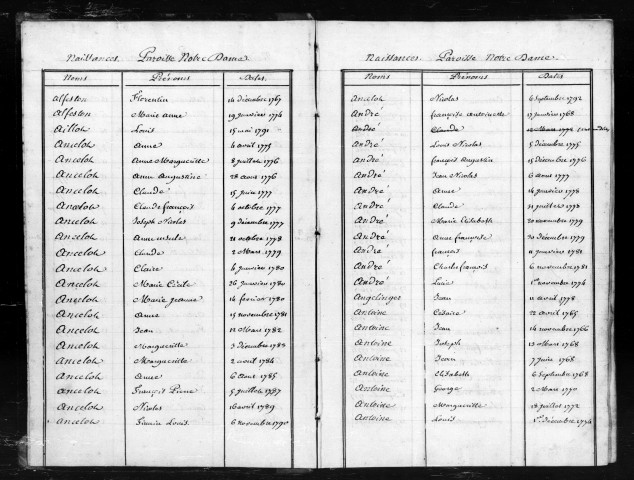 Naissances. Paroisse Notre Dame.
Noms Prénoms Dates.
Alfeston Florentin 14 décembre 1767
Alfeston Marie anne 19 janvier 1774
Aillot Louis 15 mai 1791
Ancelot Anne 4 avril 1775
Ancelot Anne Margueritte 8 juillet 1776
Ancelot Anne Augustine 28 aout 1776
Ancelot Claude 15 juin 1777
Ancelot Claude françois 4 octobre 1777
Ancelot Joseph Nicolas 9 décembre 1777
Ancelot Anne ursule 21 octobre 1778
Ancelot Claude 2 Mars 1779
Ancelot Claire 4 janvier 1780
Ancelot Marie Cécile 26 janvier 1780
Ancelot Marie jeanne 14 fevrier 1780
Ancelot Anne 15 novembre 1781
Ancelot Jean 12 Mars 1782
Ancelot Margueritte 3 décembre 1783
Ancelot Margueritte 2 avril 1784
Ancelot Anne 6 aout 1785
Ancelot françois Pierre 5 juillet 1787
Ancelot Nicolas 16 avril 1789
Ancelot Pierre Louis 6 novembre 1790
Naissances. Paroisse Notre Dame.
Noms Prénoms Dates
Ancelot Nicolas 6 Septembre 1792
André françoise antoinette 17 janvier 1768
André Claude 12 Mars 1774
André Louis Nicolas 5 décembre 1775
André françois Augustin 15 décembre 1776
André Jean Nicolas 6 aout 1777
André Anne 14 janvier 1778
André Claude 31 juillet 1778
André Marie Elisabeth 20 novembre 1779
André Anne françoise 30 décembre 1779
André françois 11 janvier 1781
André Charles françois 6 novembre 1781
André Lucie 1er novembre 1774
Angelinger Jean 11 avril 1778
Antoine Césaire 22 avril 1765
Antoine Jean 14 novembre 1766
Antoine Joseph 13 Mars 1768
Antoine Jean 7 juin 1768
Antoine Elisabeth 6 Septembre 1768
Antoine George 2 Mars 1770
Antoine Margueritte 18 juillet 1772
Antoine Louis 1er décembre 1774